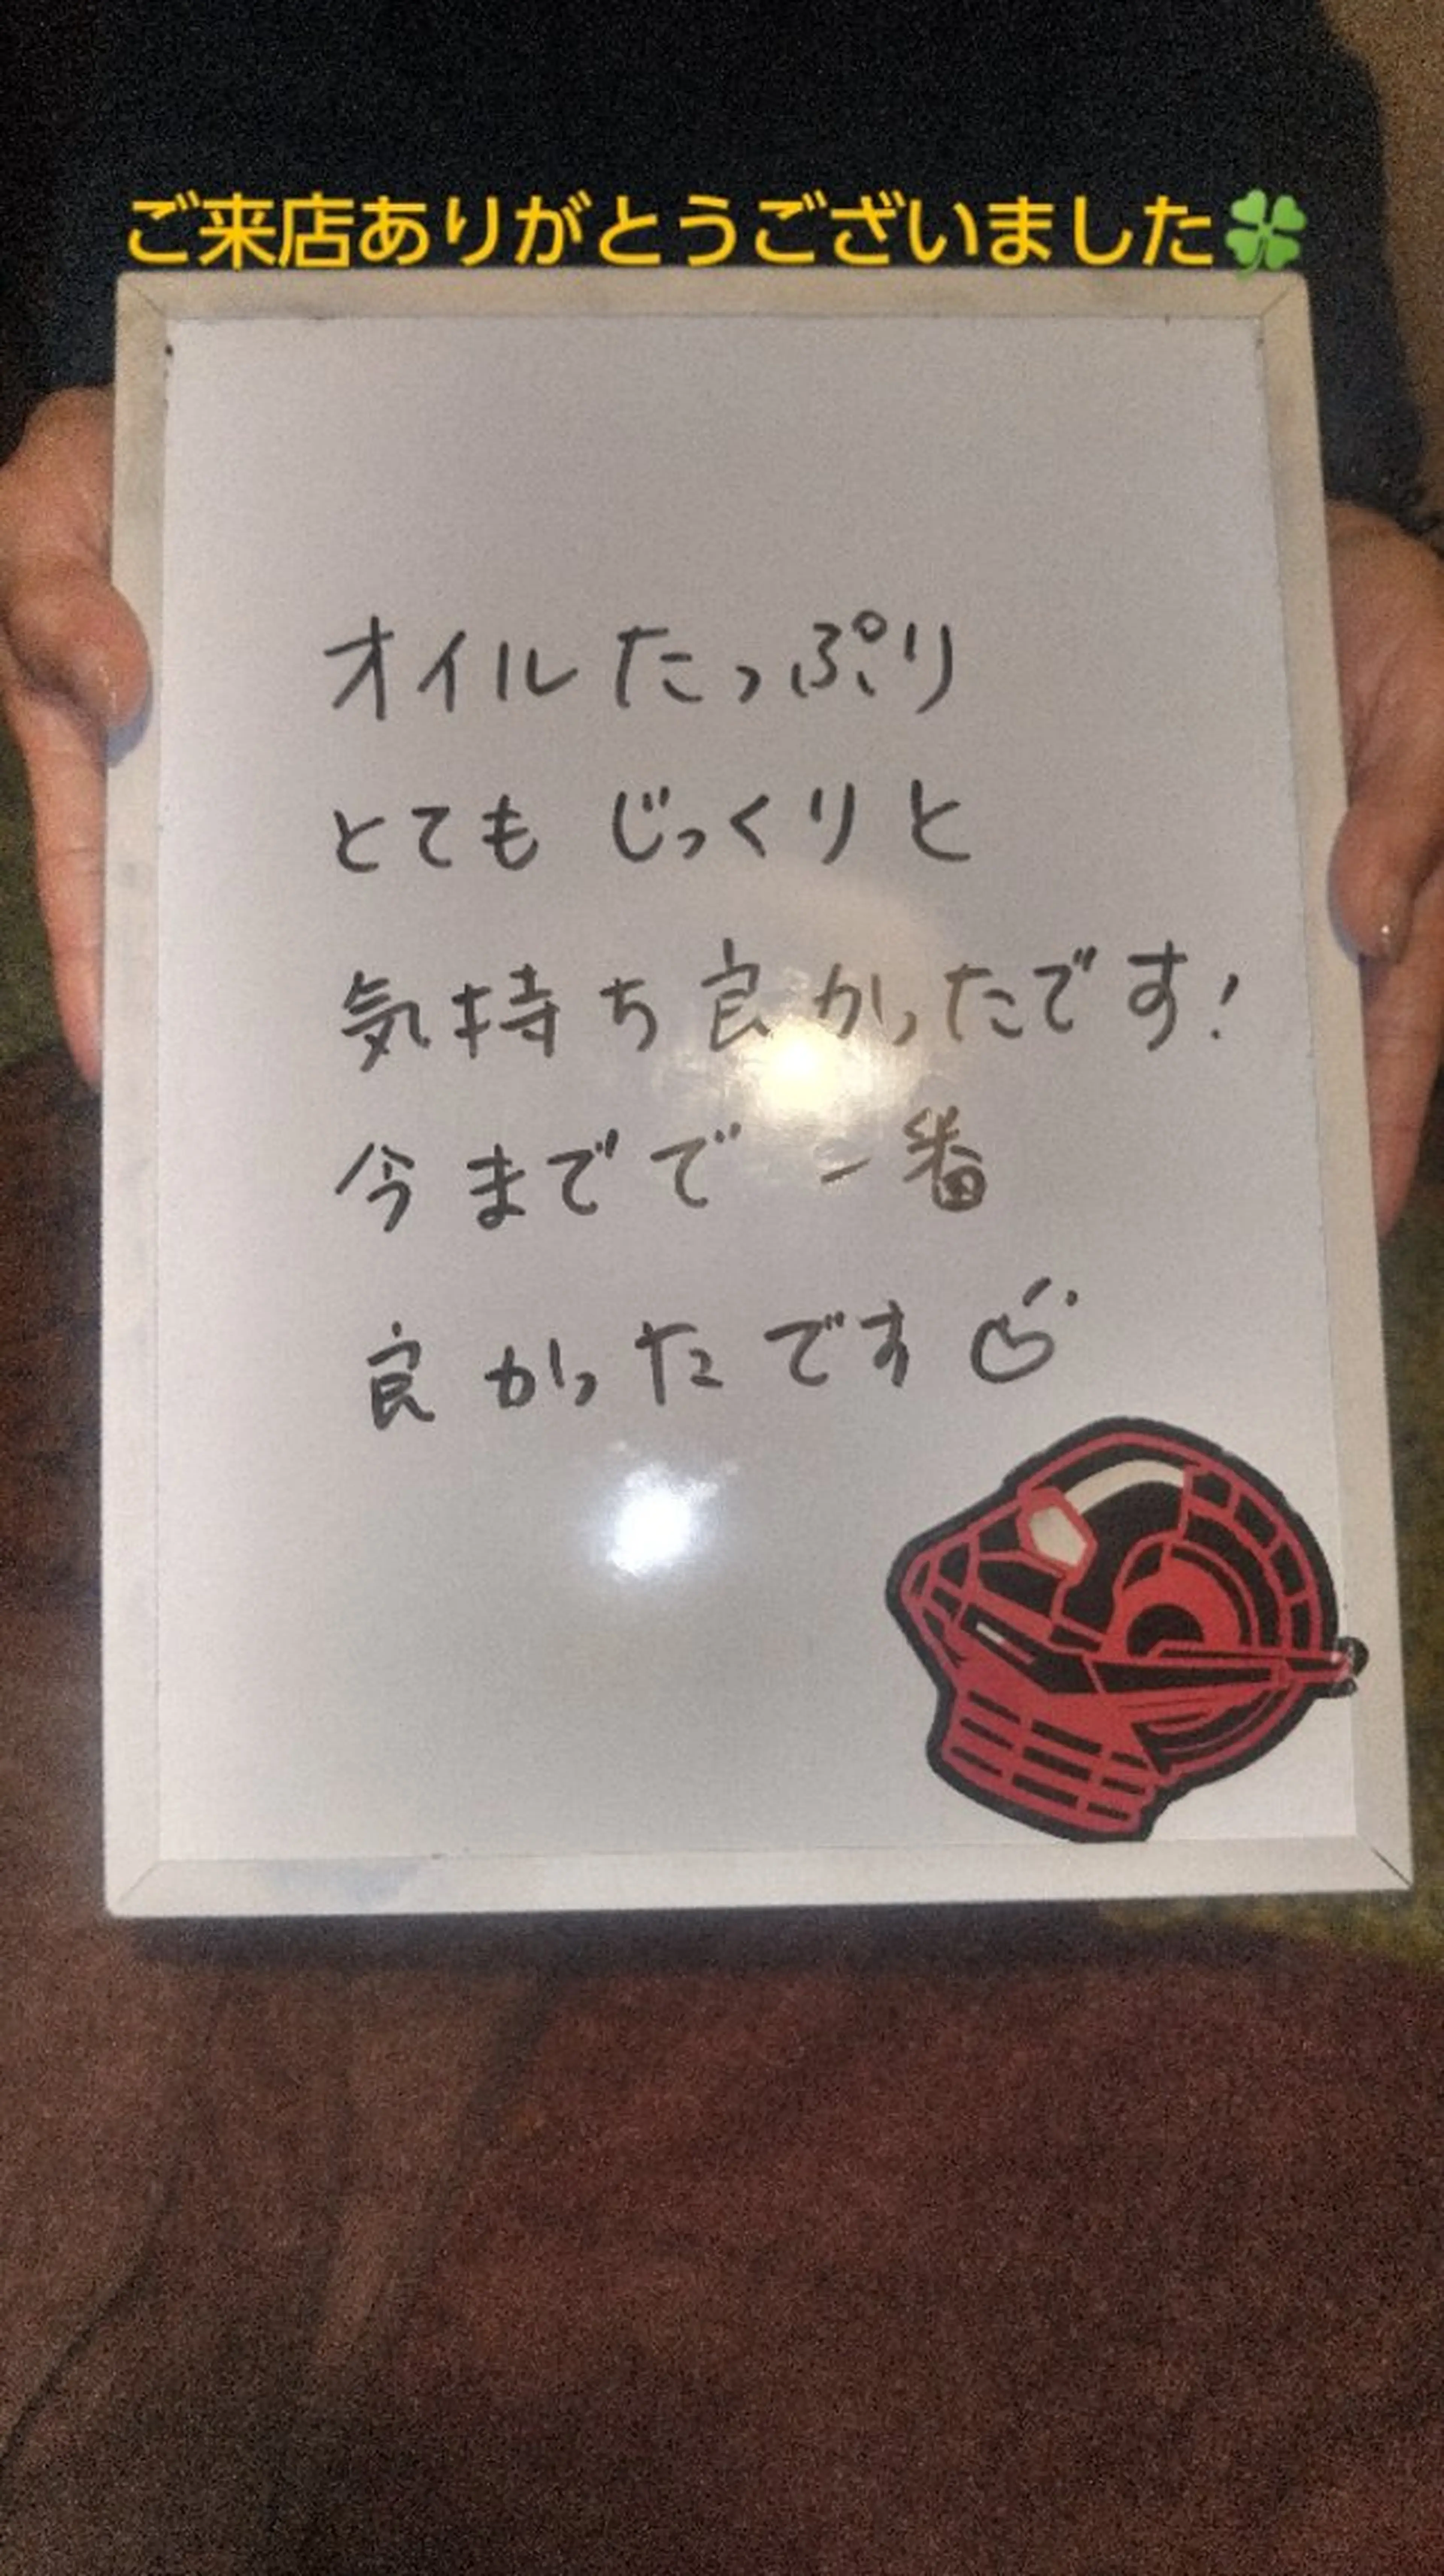 ご来店ありがとうございました🍀
オイルたっぷり
とてもじっくりと
気持ち良かったです!
今までで一番
良かったです